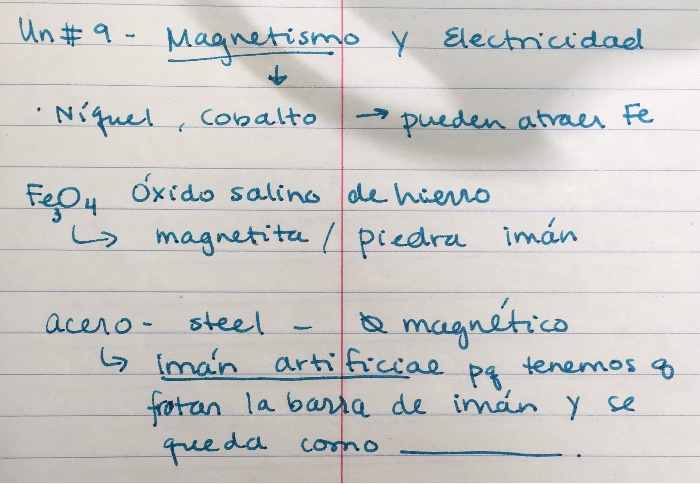 Un # 9 - Magnetismo y Electricidad
↓
· Níquel, cobalto → pueden atraer Fe
Fe₃O₄ Óxido salino de hierro
↳ magnetita / piedra imán
acero - steel - magnético
↳ imán artificial pq tenemos q
frotar la barra de imán y se
queda como ________.